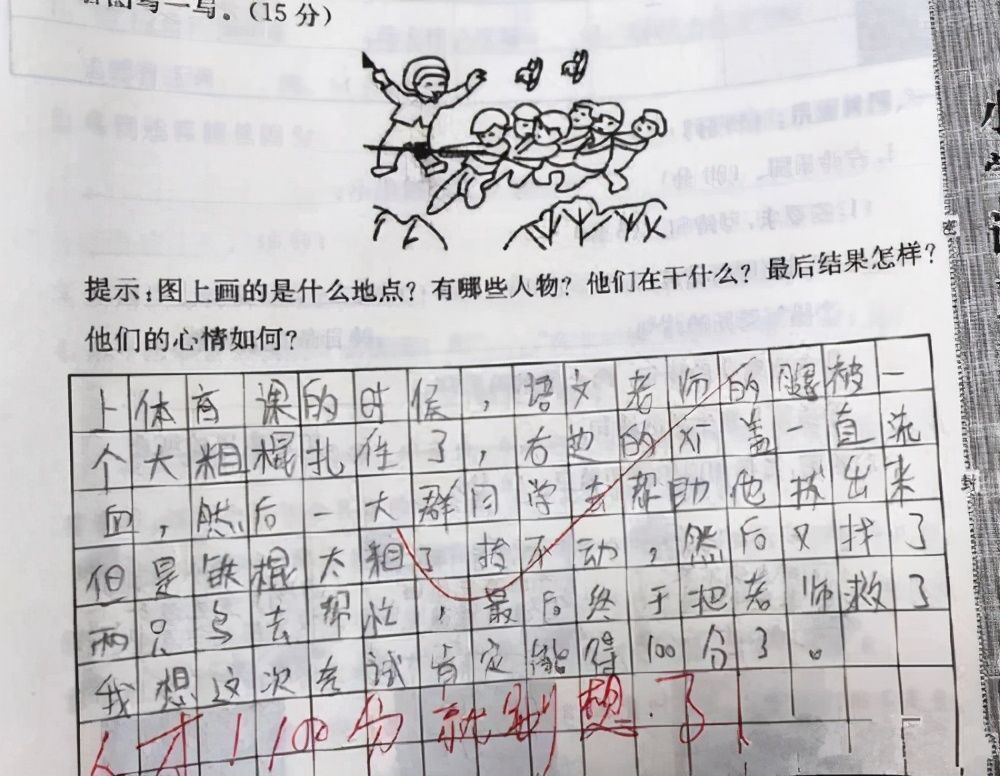 写一写。(15 分)
提示:图上画的是什么地点?有哪些人物?他们在干什么?最后结果怎样?
他们的心情如何?
上体育课的时候,语文老师的腿被一
个大粗棍扎住了,右边的膝盖一直流
血,然后一大群同学去帮助他拔出来
但是铁棍太粗了 拔不动,然后又找了
两只鸟去帮忙,最后终于把老师救了
我想这次考试肯定能得100分了。
人才!100分就别想了!
封